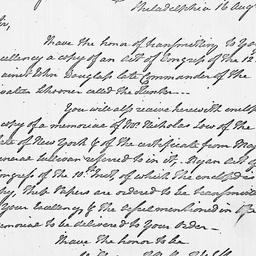 Philadelphia 16 Aug
Sir,
Have the honor of transmitting to You
cellency a copy of an Act of Congress of the 12
against John Douglass late Commander of the
vateer Schooner called the Hunter ..
You will also receive herewith enclos
copy of a memorial of Mr. Nicholas Low of the
te of New York & of the certificate from Maj
neral Sullivan referred to in it. By an Act of
ngress of the 10th Inst, of which the enclosed is
py, these Papers are ordered to be transmitte
Your Excellency, & the vessel mentioned in
emorial to be delivered to Your Order—
Have the honor to be